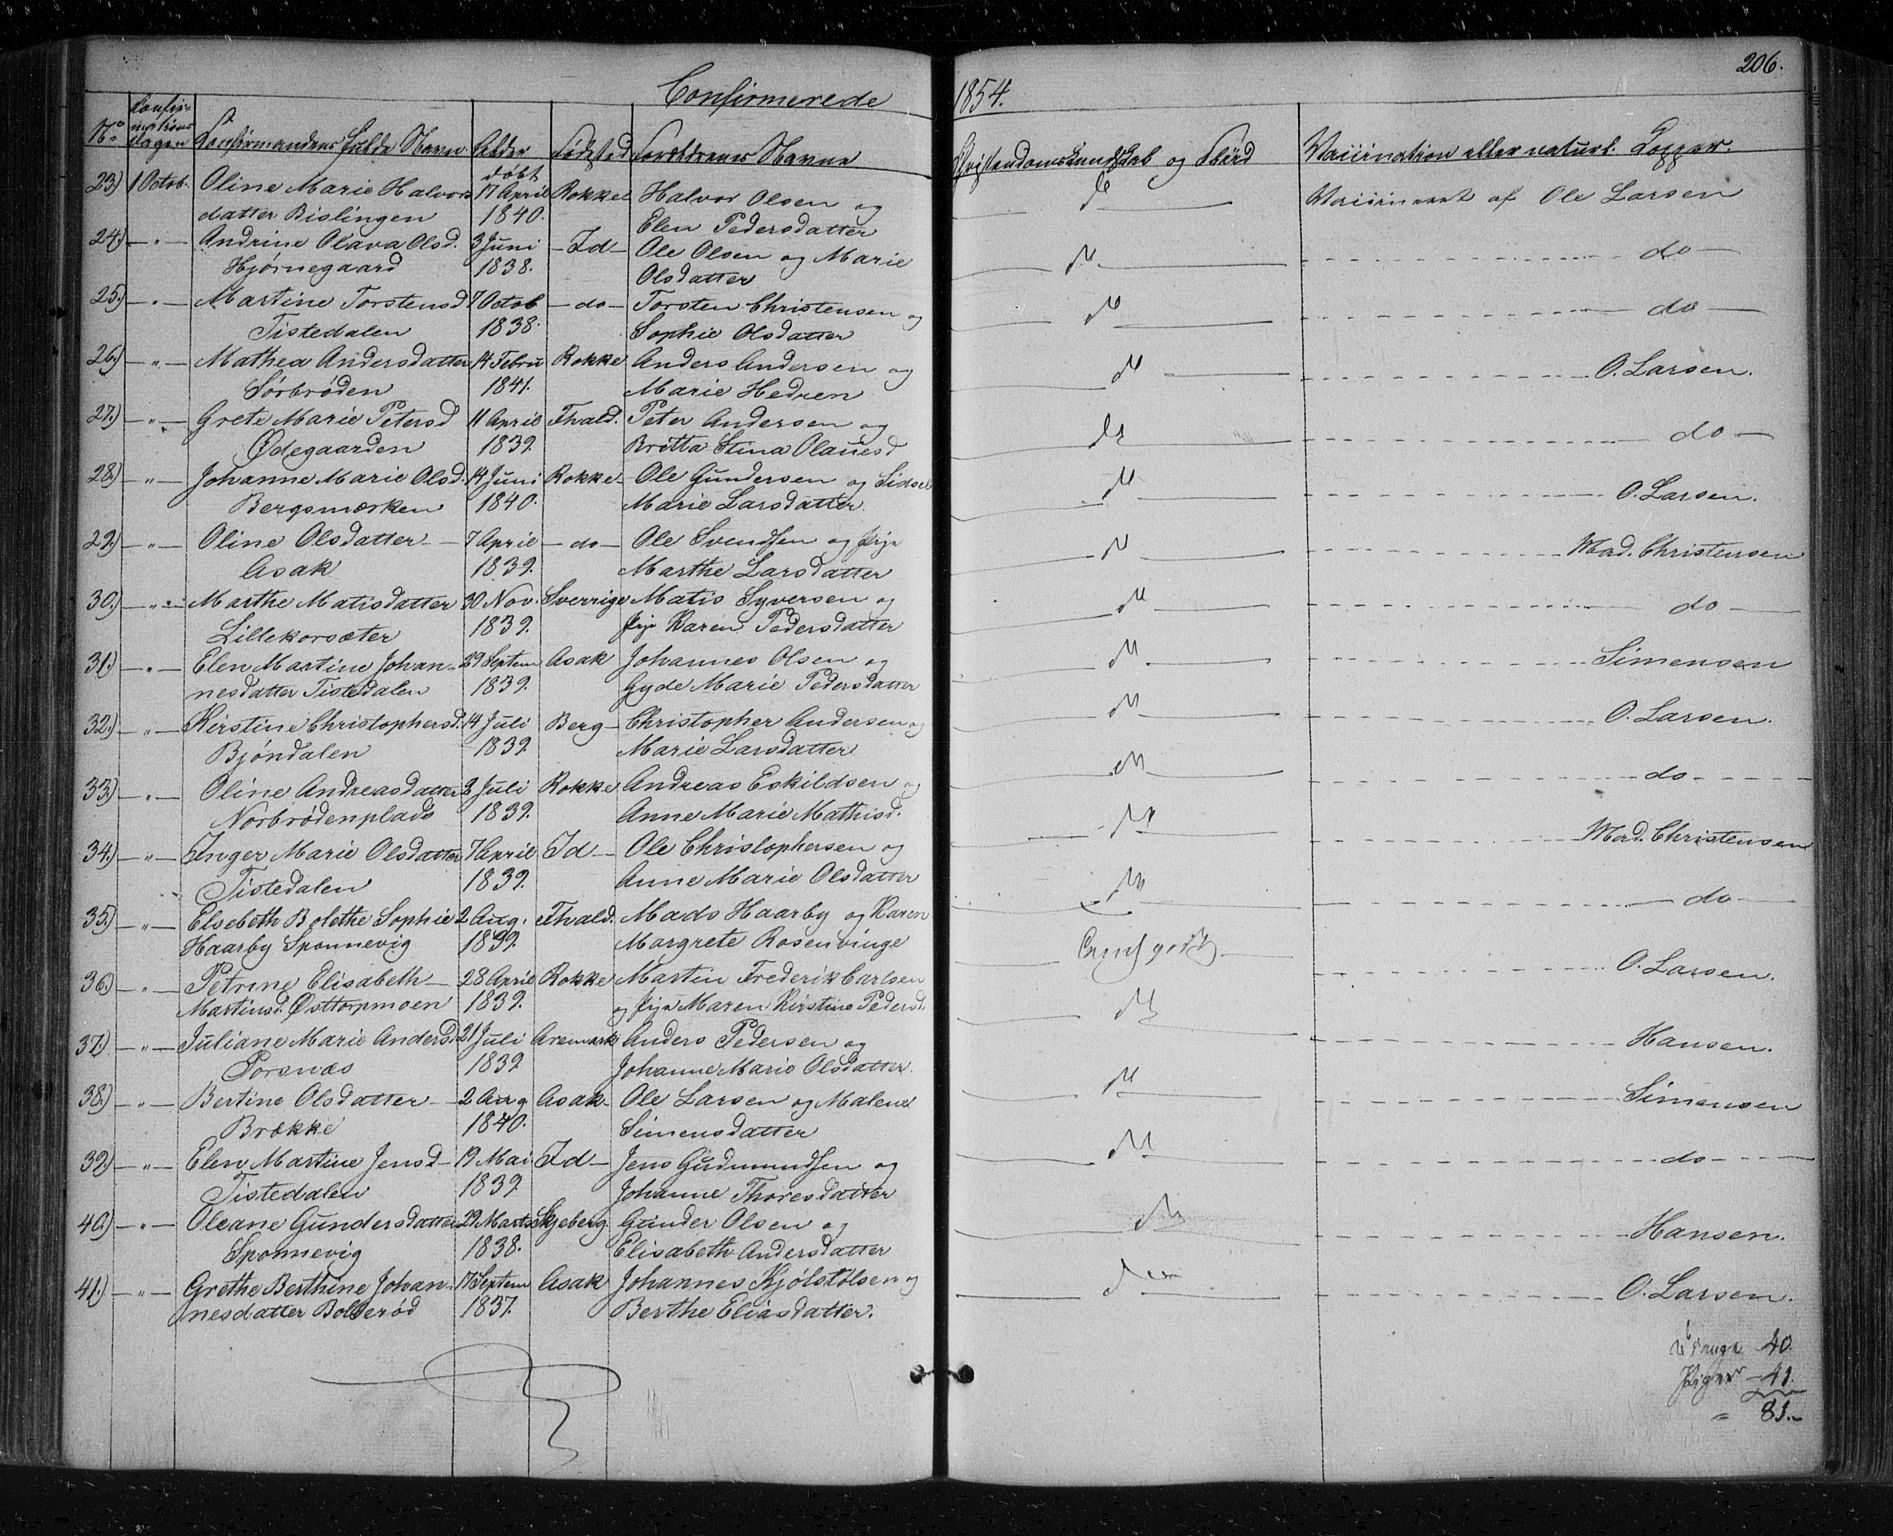 Confirmerede
1854.
206.
No Confirmations dagen Confirmandens fulde Navn Alder Fødested Forældrenes Navne Christendomskundskab og Flid Vaccination eller naturl. Kopper.
døbt
23) 1 Octob. Oline Marie Halvors 17 April Rokke Halvor Olsen og Vaccineret af Ole Larsen
datter Bislingen 1840. Elen Pedersdatter
24) — " — Andrine Olava Olsd. 3 Juni — Id — Ole Olsen og Marie do —
Hjørnegaard 1838. Olsdatter
25.) — " — Martine Torstensd 7 Octob — do — Torsten Christensen og — do —
Tistedalen 1838. Sophie Olsdatter
26.) — " — Mathea Andersdatter 14 Febru Rokke Anders Andersen og O. Larsen.
Sørbrøden 1841. Marie Hedren
27.) — " — Grete Marie Petersd 11 April Fhald. Peter Andersen og do —
Ødegaarden 1839. Britta Stina Olauesd
28) — " — Johanne Marie Olsd. 14 Juni Rokke Ole Gundersen og Sidsel O. Larsen.
Bergsmarken 1840. Marie Larsdatter.
29.) — " — Oline Olsdatter — 7 April — do — Ole Svendsen og Pige Mad. Christensen
Asak 1839. Marthe Larsdatter
30.) — " — Marthe Matisdatter 30 Nov. Sverrige Matis Syversen og do —
Lillekorsæter 1839. Pige Karen Pedersdatter
31.) — " — Elen Martine Johan- 29 Septem Asak Johannes Olsen og Simensen
nesdatter Tistedalen 1839. Gyde Marie Pedersdatter
32.) — " — Kirstine Christophersd. 14 Juli Berg — Christopher Andersen og O. Larsen.
Bjöndalen 1839. Marie Larsdatter
33.) — " — Oline Andreasdatter 2 Juli Rokke Andreas Eskildsen og do
Norbrødenplads 1839. Anne Marie Mathisd.
34.) — " — Inger Marie Olsdatter 7 April Id — Ole Christophersen og Mad. Christensen
Tistedalen 1839. Anne Marie Olsdatter
35.) — " — Elsebeth Bolethe Sophie 2 Aug. Fhald. Mads Haarby og Karen — do —
Haarby Sponnevig 1839. Margrete Rosenvinge
36.) — " — Petrine Elisabeth — 28 April Rokke Martin Frederik Carlsen O. Larsen.
Martinsd. Østtorpmoen 1839. og Pige Maren Kirstine Pedersd.
37.) — " — Juliane Marie Andersd 21 Juli Aremark Anders Pedersen og Hansen.
Porsnæs 1839 Johanne Marie Olsdatter.
38.) — " — Bertine Olsdatter — 2 Aug Asak Ole Larsen og Malene Simensen
Brække 1840. Simensdatter
39.) — " — Elen Martine Jensd — 19 Mai Id — Jens Gudmundsen og do
Tistedalen 1839 Johanne Thoresdatter
40.) — " — Oleane Gundersdatter 29 Marts Skjeberg. Gunder Olsen og Hansen.
Sponnevig 1838. Elisabeth Andersdatter
41.) — " — Grethe Berthine Johan- 17 Septem Asak Johannes Kjølstølsen og O. Larsen.
nesdatter Bollerød 1837. Berthe Eliasdatter.
Drenge 40.
Piger — 41.
" 81.